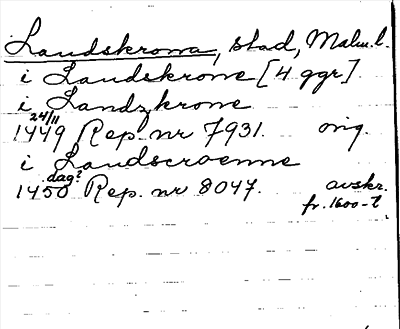 Landskrona, stad, Malm.l.
i Landskrone [4 ggr].
i Landzkrone
24/11
1449 Rep. nr 7931. orig.
i Landscroenne
dag?
1450 Rep. nr 8047. avskr.
fr. 1600-t